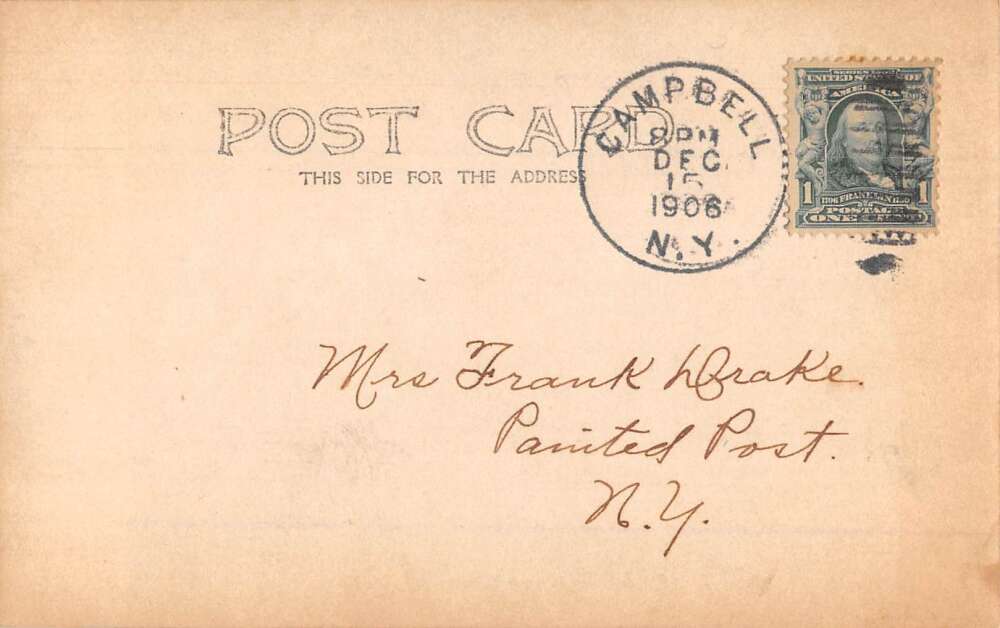 POST CARD
THIS SIDE FOR THE ADDRESS
CAMPBELL
8 PM
DEC
15
1906
N.Y.
SERIES 1902
UNITED STATES OF
AMERICA
1706 FRANKLIN 1790
1
POSTAGE
ONE
Mrs Frank Drake.
Painted Post.
N.Y.